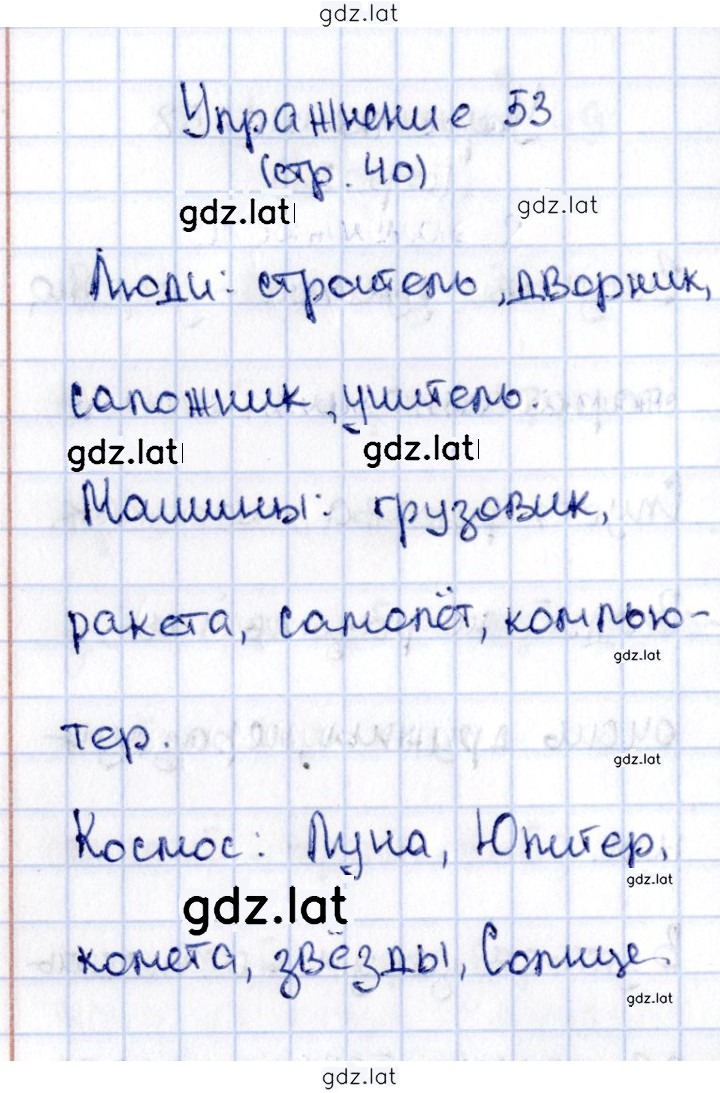 gdz.lat
Упражнение 53
(стр. 40)
gdz.lat gdz.lat
Люди: строитель, дворник,
сапожник, учитель.
gdz.lat gdz.lat
Машины: грузовик,
ракета, самолёт, компью-
gdz.lat
тер.
gdz.lat
Космос: Луна, Юпитер,
gdz.lat
gdz.lat
комета, звёзды, Солнце.
gdz.lat
gdz.lat